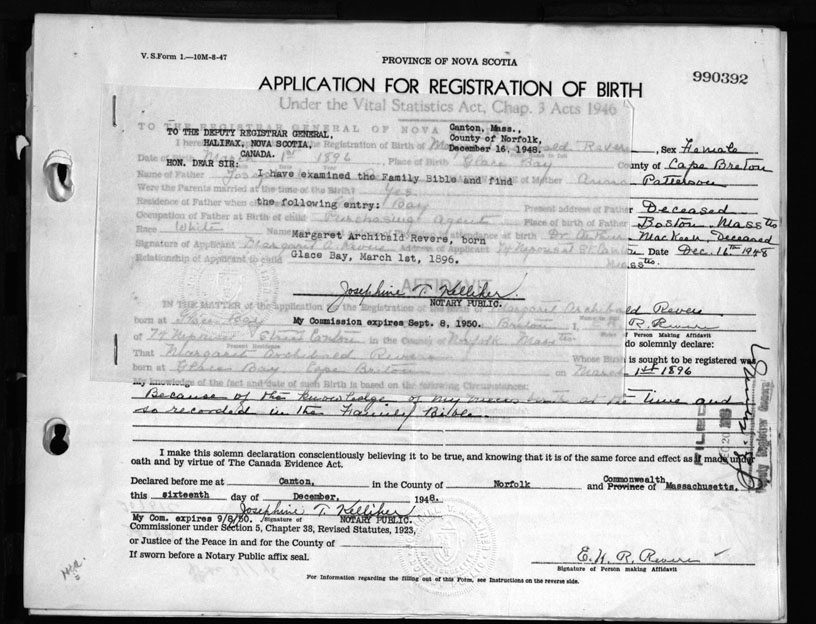 V. S. Form 1.—10M-8-47
PROVINCE OF NOVA SCOTIA
990392
APPLICATION FOR REGISTRATION OF BIRTH
Under the Vital Statistics Act, Chap. 3 Acts 1946
TO THE REGISTRAR GENERAL OF NOVA
TO THE DEPUTY REGISTRAR GENERAL,
HALIFAX, NOVA SCOTIA,
CANADA.
HON. DEAR SIR:
Canton, Mass.,
County of Norfolk,
December 16, 1948.
I have examined the Family Bible and find
the following entry:
Margaret Archibald Revere, born
Glace Bay, March 1st, 1896.
Josephine T. Kelliher.
NOTARY PUBLIC.
My Commission expires Sept. 8, 1950.
, Sex Female
1st 1896, Place of Birth Glace Bay County of Cape Breton
Name of Father of Mother Anna Patterson
Were the Parents married at the time of the Birth? Yes
Residence of Father when Bay Present address of Father Deceased
Occupation of Father at Birth of child Purchasing Agent Place of birth of Father Boston, Mass
Race White attendance at birth Dr. MacKeen, Deceased
Signature of Applicant Margaret A. Revere of Applicant 74 Neponset St. Date Dec. 16th 1948
Relationship of Applicant to child Mass
AFFIDAVIT
IN THE MATTER of the application of the Registration of the birth Margaret Archibald Revere
born at Glace Bay Breton I, R. Revere
Person Making Affidavit
of 74 Neponset Street Canton in the County of Norfolk Mass do solemnly declare:
That Margaret Archibald Revere Whose Birth is sought to be registered was
born at Glace Bay Cape Breton on March 1st 1896
My knowledge of the fact and date of such Birth is based on the following Circumstances:
Because of the knowledge of my at the time and
so recorded in the Family Bible.
I make this solemn declaration conscientiously believing it to be true, and knowing that it is of the same force and effect as if made under
oath and by virtue of The Canada Evidence Act.
Declared before me at Canton, in the County of Norfolk Commonwealth, and Province of Massachusetts.
this sixteenth day of December, 1948.
Josephine T. Kelliher
My Com. expires 9/8/50. Signature of NOTARY PUBLIC.
Commissioner under Section 5, Chapter 38, Revised Statutes, 1923,
or Justice of the Peace in and for the County of
If sworn before a Notary Public affix seal.
E. H. R. Revere
Signature of Person making Affidavit
For Information regarding the filling out of this Form, see Instructions on the reverse side.
FILED